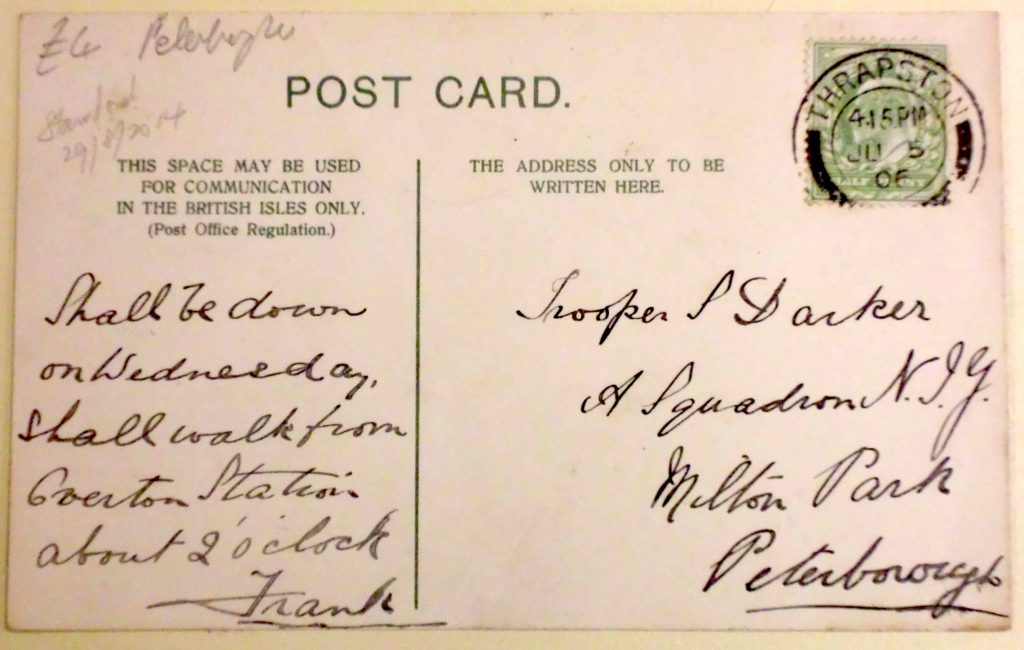 £6 Peterboro'
Stamford
29/8/2014
POST CARD.
THIS SPACE MAY BE USED
FOR COMMUNICATION
IN THE BRITISH ISLES ONLY.
(Post Office Regulation.)
THE ADDRESS ONLY TO BE
WRITTEN HERE.
THRAPSTON
4.15 PM
JU 5
06
HALFPENNY
Shall be down
on Wednesday,
Shall walk from
Overton Station
about 2 o'clock
Frank
Trooper S Darker
A Squadron N.I.Y.
Milton Park
Peterborough